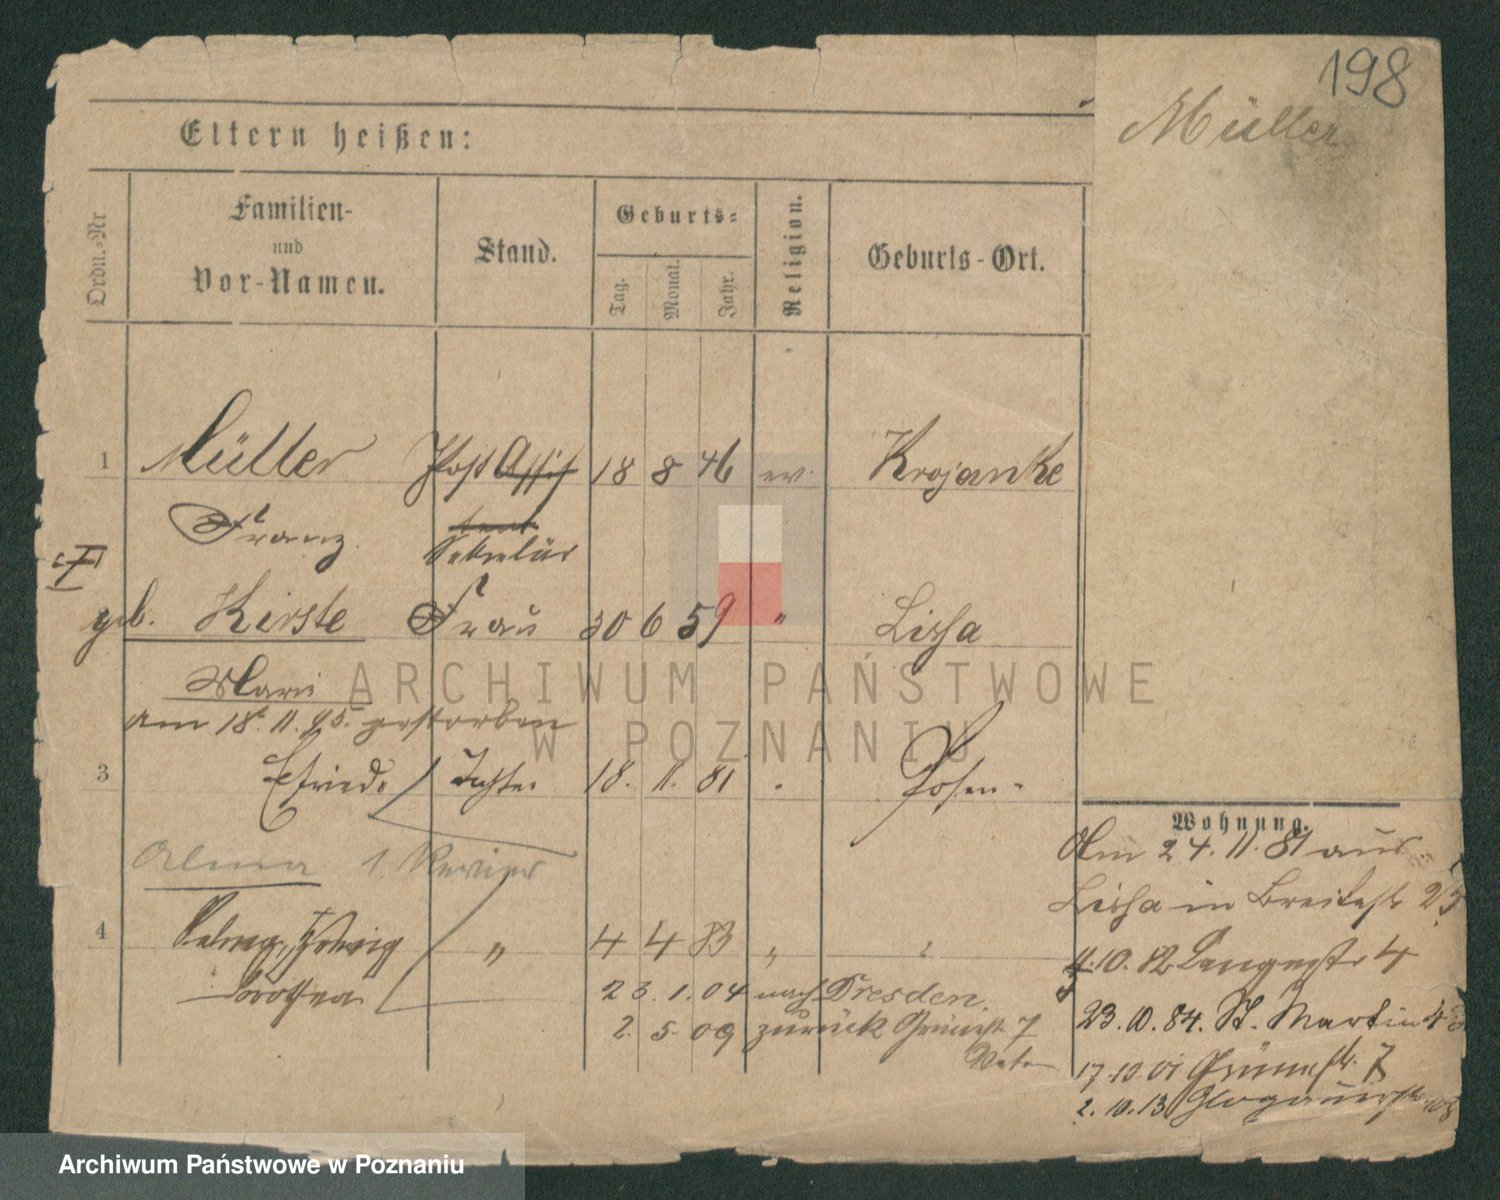 198
Müller
Eltern heißen:
Ordn.-Nr
Familien-
und
Vor-Namen.
Stand.
Geburts-
Tag.
Monat.
Jahr.
Religion.
Geburts-Ort.
1 Müller Post Assis 18 8 46 ev. Krojanke
Franz tent
Sekretär
geb. Kirste Frau 30 6 59 " Lissa
Marie
am 18. 11. 95. gestorben
3 Tochter 18. 11. 81 Posen
Alma 1. Revier
4 Hedwig " 4 4 83 "
Dorothea 23. 1. 04 nach Dresden.
2. 5 09 zurück Grünestr. 7
Wohnung.
Am 24. 11. 81 aus
Lissa in Breitestr
10. 82 Langestr 4
23. 10. 84. St. Martin
17. 10. 01 Grünestr. 7
2. 10. 13 Glogauerstr
ARCHIWUM PAŃSTWOWE
W POZNANIU
Archiwum Państwowe w Poznaniu